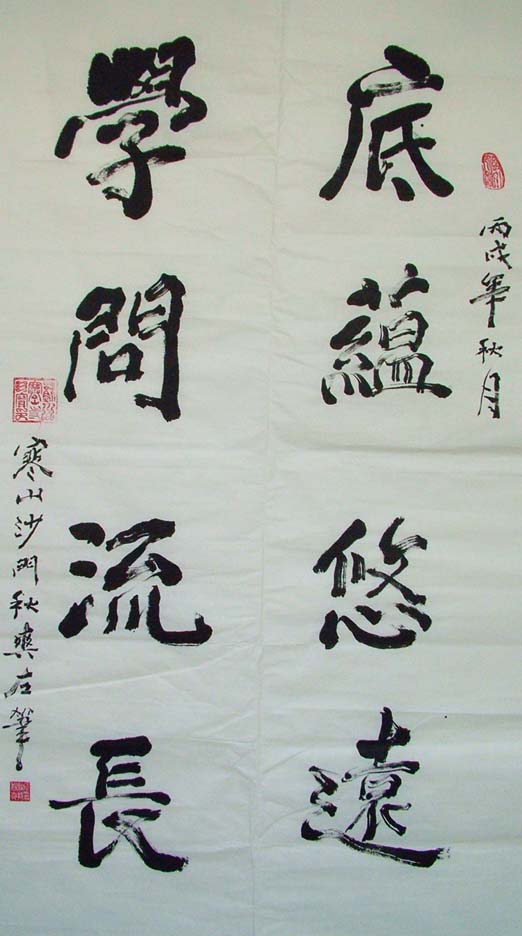 丙戌年秋月
底蘊悠遠
學問流長
寒山沙門秋爽左筆